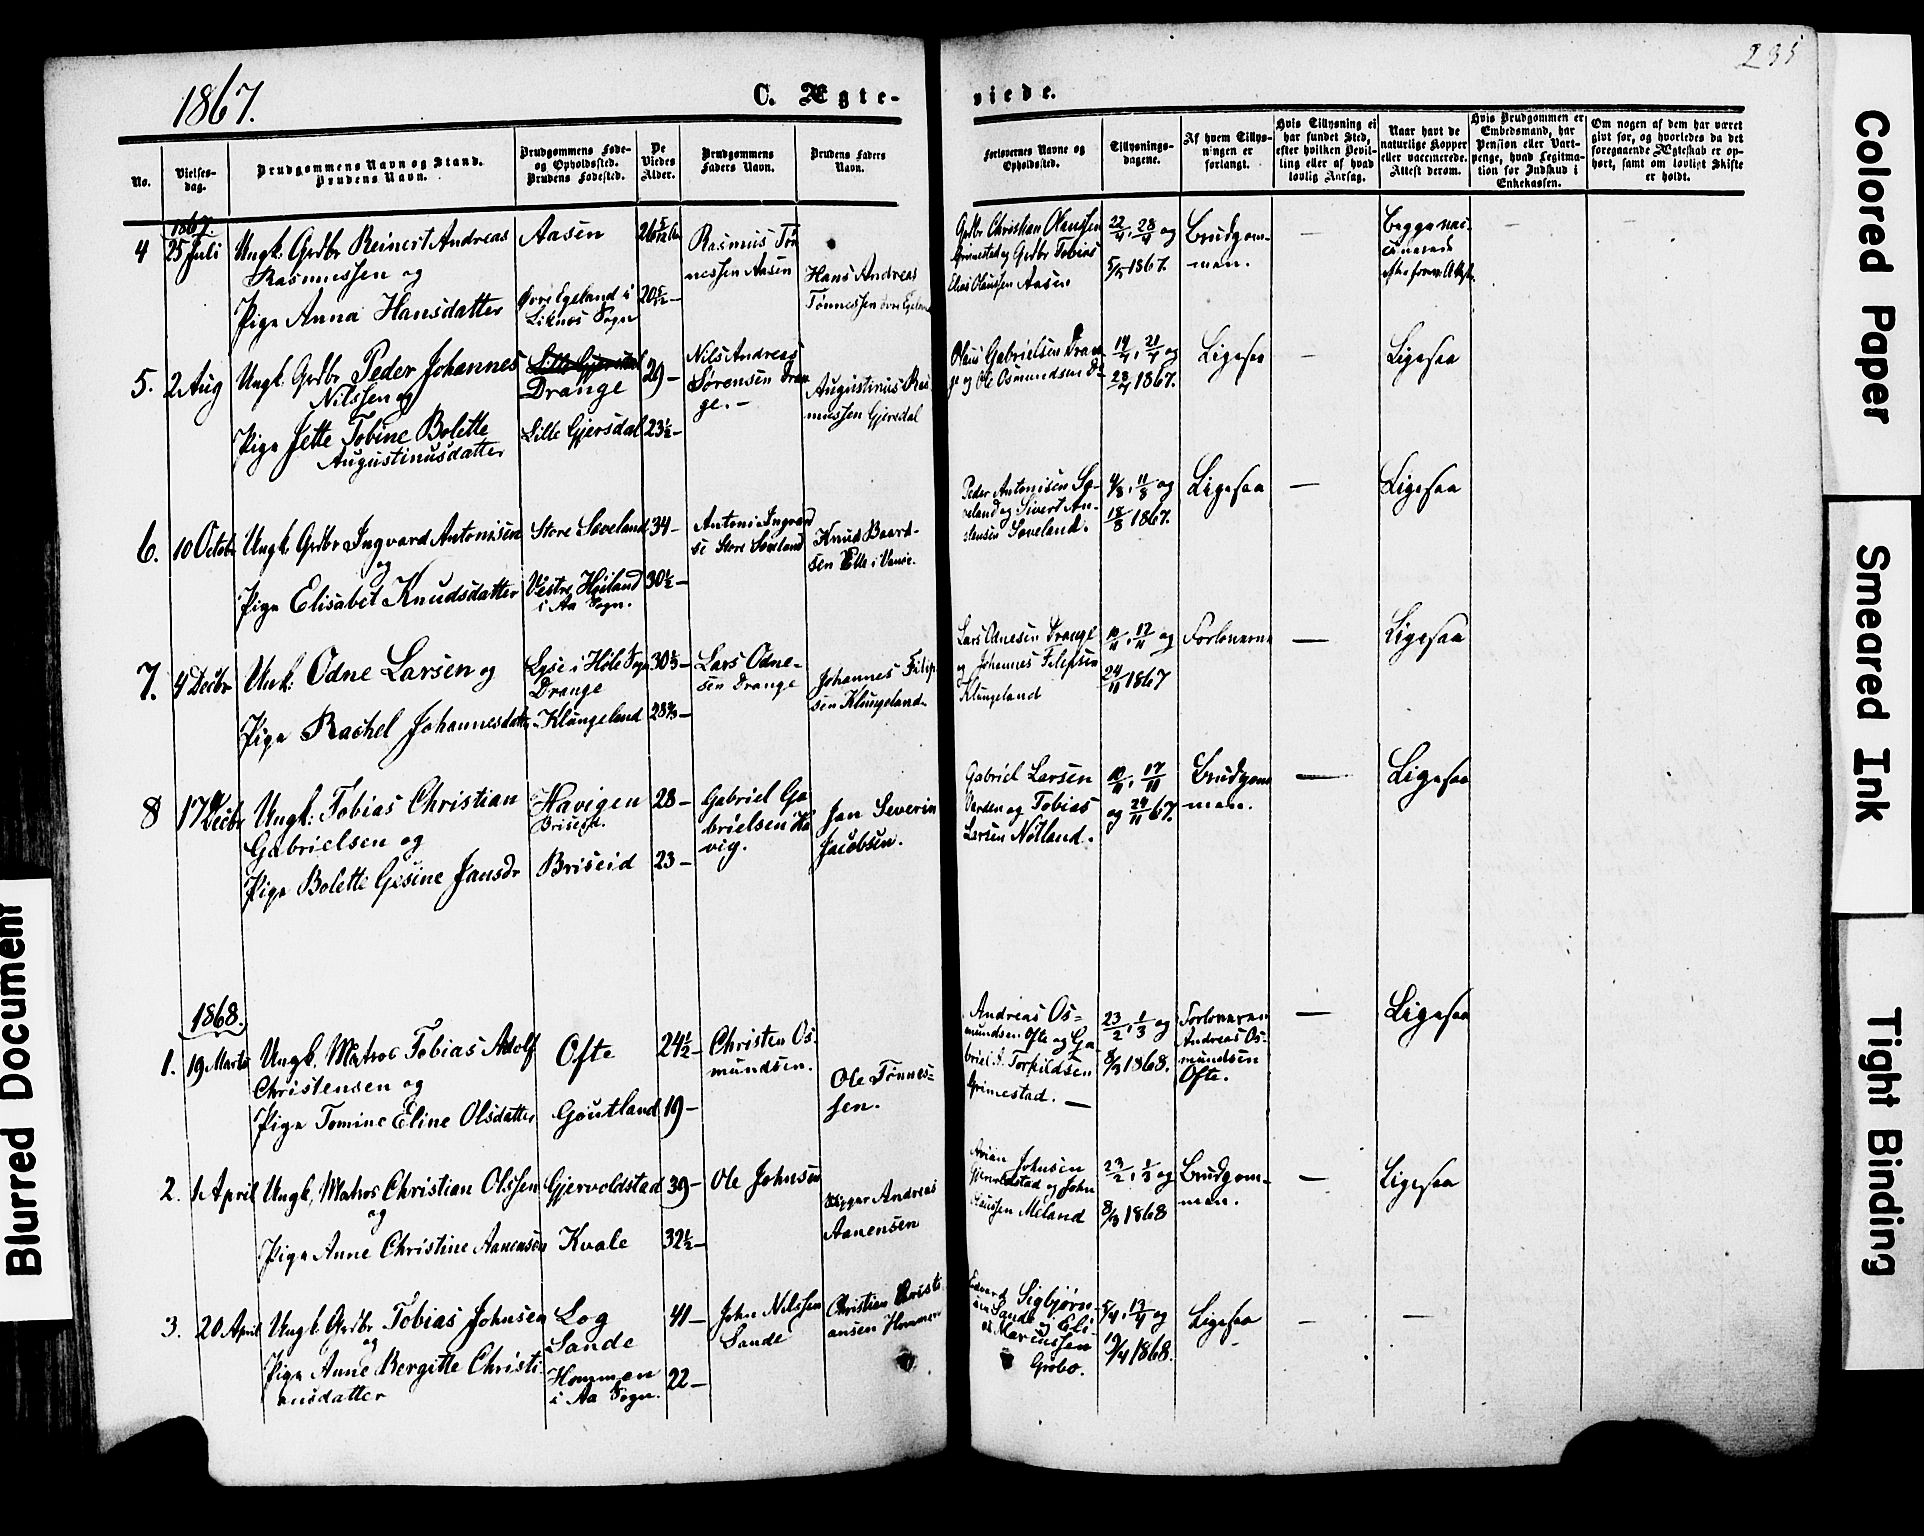 1867.
C. Ægte-
viede.
235
No.
Vielses-
dag.
Brudgommens Navn og Stand.
Brudens Navn.
Brudgommens Føde-
og Opholdssted.
Brudens Fødested.
De
Viedes
Alder.
Brudgommens
Faders Navn.
Brudens Faders
Navn.
Forlovernes Navne og
Opholdssted.
Tillysnings-
dagene.
Af hvem Tillys-
ningen er
forlangt.
Hvis Tillysning ei
har fundet Sted,
efter hvilken Bevil-
ling eller af hvad
lovlig Aarsag.
Naar havt de
naturlige Kopper
eller vaccinerede.
Attest derom.
Hvis Brudgommen er
Embedsmand, har
Pension eller Vart-
penge, hvad Legitima-
tion for Indskud i
Enkekassen.
Om nogen af dem har været
gift før, og hvorledes da det
foregaaende Ægteskab er op-
hørt, samt om lovligt Skifte
er holdt.
1867.
4
25 Juli
Ungk. Grdbr Reinert Andreas
Rasmussen og
Pige Anna Hansdatter
Aasen
Øvre Egeland i
Liknes Sogn
26 5/12 Aar
20 5/12 —
Rasmus Tøn
nessen Aasen
Hans Andreas
Tønnessen øvre Egeland
Grdbr Christian Olaussen
Grimestad og Grdbr Tobias
Elias Olaussen Aasen
22/4, 28/4 og
5/5 1867.
Brudgom-
men.
—
Begge vac-
cinerede
—
5.
2 Aug
Ungk. Grdbr Peder Johannes
Nilssen og
Pige Jette Tobine Bolette
Augustinusdatter
Lille Gjersdal
Drange
Lille Gjersdal
29 —
23½ —
Nils Andreas
Sørensen Dran
ge. —
Augustinus Ras
mussen Gjersdal
Olaus Gabrielsen Dran
ge og Ole Osmundsen D-
14/4, 21/4 og
28/4 1867.
Ligesaa
—
Ligesaa
6.
10 Octobr
Ungk. Grdbr Ingvard Antonisen
og
Pige Elisabet Knudsdatter
Store Søveland
Vestre Høiland
i Aa Sogn.
34 —
30½ —
Antoni Ingvard
se Store Søveland
Knud Baard-
sen Etle i Vanse.
Peder Antonisen Sø-
veland og Sivert An-
stensen Søveland.
4/8, 11/8 og
18/8 1867.
Ligesaa
—
Ligesaa
7.
4 Decbr
Unk: Odne Larsen og
Pige Rachel Johannesdatter
Lyse i Høle Sogn
Drange
Klungeland
30⅓ —
28⅔ —
Lars Odne-
sen Drange
Johannes Filip
sen Klungeland
Lars Odnesen Drange
og Johannes Filipsen
Klungeland
10/11, 17/11 og
24/11 1867
Forloverne
—
Ligesaa
8
17 Decbr
Ungk: Tobias Christian
Gabrielsen og
Pige Bolette Gesine Jansdr
Havigen
Briseid.
Briseid
28 —
23 —
Gabriel Ga
brielsen Ha
vig.
Jan Severin
Jacobsen.
Gabriel Larsen
Varden og Tobias
Larsen Nøtland.
10/11, 17/11
og 24/11 67.
Brudgom
men.
—
Ligesaa
1868.
1.
19 Marts
Ungk. Matros Tobias Adolf
Christensen og
Pige Tomine Eline Olsdatter
Ofte
Goutland
24½ —
19 —
Christen Os-
mundsen.
Ole Tønnes-
sen.
Andreas Os-
mundsen Ofte og Ga
briel A. Torkildsen
Grimestad. —
23/2, 1/3 og
8/3 1868.
Forloveren
Andreas Os-
mundsen
Ofte.
—
Ligesaa
2.
1 April
Ungk. Matros Christian Olssen
og
Pige Anne Christine Aanensen
Gjervoldstad
Kvale
39 —
32½ —
Ole Johnsen
Skipper Andreas
Aanensen
Arian Johnsen
Gjervoldstad og John
Meland
23/2, 1/3 og
8/3 1868
Brudgom-
men.
—
Ligesaa
3.
20 April
Ungk. Grdbr Tobias Johnsen
og
Pige Anne Bergitte Christi-
ansdatter
Log
Sande
Hommen
i Aa Sogn.
41 —
22 —
John Nilssen
Sande
Christian Christi
ansen Hommen
Edvard Sigbjørn-
sen Sande og Eli-
as Marcussen
Grobo.
5/4, 13/4 og
19/4 1868.
Ligesaa
—
—
Blurred Document
Colored Paper
Smeared Ink
Tight Binding